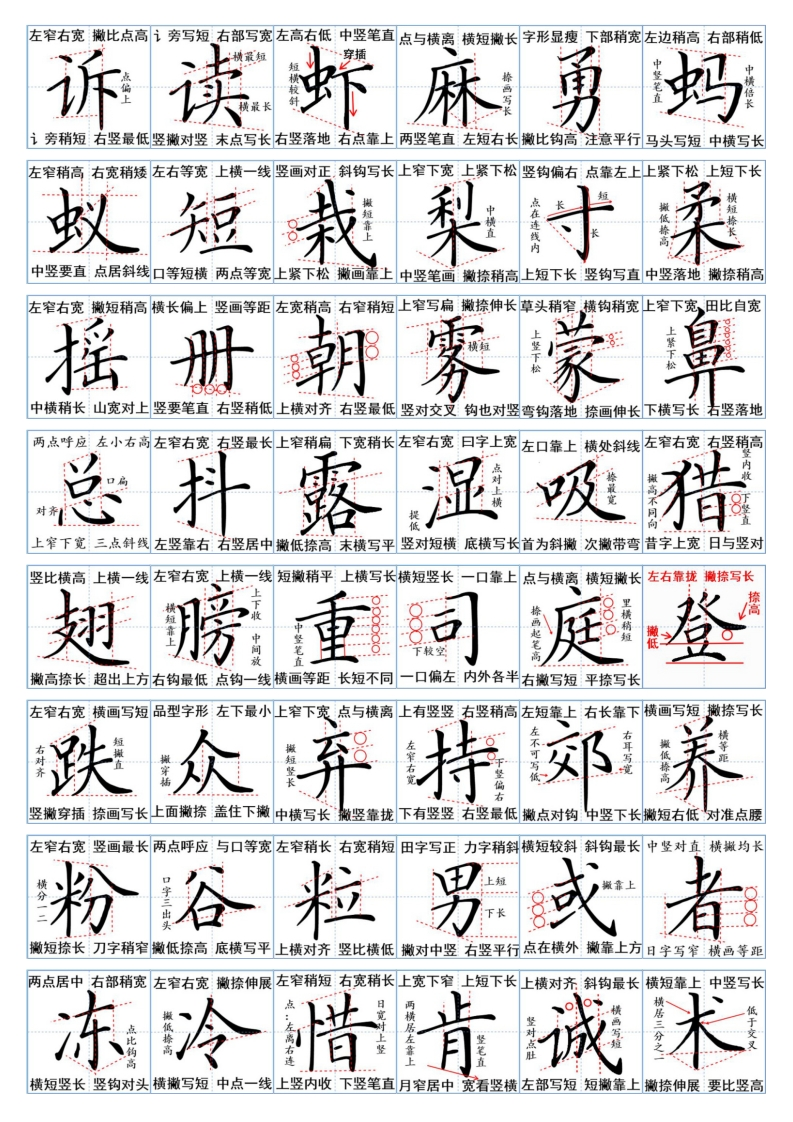 左窄右宽 撇比点高 讠旁写短 右部写宽 左高右低 中竖笔直 点与横离 横短撇长 字形显瘦 下部稍宽 左边稍高 右部稍低
诉 点偏上 读 横最短 横最长 虾 短横较斜 穿插 麻 捺画写长 勇 蚂 中竖笔直 中横倍长
讠旁稍短 右竖最低 竖撇对竖 末点写长 右竖落地 右点靠上 两竖笔直 左短右长 撇比钩高 注意平行 马头写短 中横写长
左窄稍高 右宽稍矮 左右等宽 上横一线 竖画对正 斜钩写长 上窄下宽 上紧下松 竖钩偏右 点靠左上 上紧下松 上短下长
蚁 短 栽 撇短靠上 梨 中横直 寸 点在连线内 长 短 长 柔 撇低捺高 横短捺长
中竖要直 点居斜线 口等短横 两点等宽 上紧下松 撇画靠上 中竖笔画 撇捺稍高 上短下长 竖钩写直 中竖落地 撇捺稍高
左窄右宽 撇短稍高 横长偏上 竖画等距 左宽稍高 右窄稍短 上窄写扁 撇捺伸长 草头稍窄 横钩稍宽 上窄下宽 田比自宽
摇 册 朝 雾 横短 蒙 上竖下松 鼻 上紧下松
中横稍长 山宽对上 竖要笔直 右竖稍低 上横对齐 右竖最低 竖对交叉 钩也对竖 弯钩落地 捺画伸长 下横写长 右竖落地
两点呼应 左小右高 左窄右宽 右竖最长 上窄稍扁 下宽稍长 左窄右宽 曰字上宽 左口靠上 横处斜线 左窄右宽 右竖稍高
总 口扁 对齐 抖 露 湿 提低 点对上横 吸 捺最宽 猎 撇高不同向 竖内收 下竖直
上窄下宽 三点斜线 左竖靠右 右竖居中 撇低捺高 末横写平 竖对短横 底横写长 首为斜撇 次撇带弯 昔字上宽 日与竖对
竖比横高 上横一线 左窄右宽 上横一线 短撇稍平 上横写长 横短竖长 一口靠上 点与横离 横短撇长 左右靠拢 撇捺写长
翅 膀 横短靠上 上下收 中间放 重 中竖笔直 司 下较空 庭 捺画起笔高 里横稍短 登 撇低 捺高
撇高捺长 超出上方 右钩最低 点钩一线 横画等距 长短不同 一口偏左 内外各半 右撇写短 平捺写长
左窄右宽 横画写短 品型字形 左下最小 上窄下宽 点与横离 上有竖竖 右竖稍高 左短靠上 右长靠下 横画写短 撇捺写长
跌 右对齐 短撇直 众 撇穿插 弃 撇短竖长 持 左窄右宽 下竖偏右 郊 左不可写低 右耳写宽 养 撇低捺高 横等距
竖撇穿插 捺画写长 上面撇捺 盖住下撇 中横写长 撇竖靠拢 下有竖竖 右竖最低 撇点对钩 中竖下长 撇短右低 对准点腰
左窄右宽 竖画最长 两点呼应 与口等宽 左窄稍长 右宽稍短 田字写正 力字稍斜 横短较斜 斜钩最长 中竖对直 横撇均长
粉 横分一二 谷 口字三出头 粒 男 上短 下长 或 撇靠上 者
撇短捺长 刀字稍窄 撇低捺高 底横写平 上横对齐 竖比横低 撇对中竖 右竖平行 点在横外 撇靠上方 日字写窄 横画等距
两点居中 右部稍宽 左窄右宽 撇捺伸展 左窄稍短 右宽稍长 上宽下窄 上短下长 上横对齐 斜钩最长 横短靠上 中竖写长
冻 点比钩高 冷 撇低捺高 惜 点：左离右连 日宽对上竖 肯 两横居左靠上 竖笔直 诚 竖对点肚 横画写短 术 横居三分之一 低于交叉
横短竖长 竖钩对头 横撇写短 中点一线 上竖内收 下竖笔直 月窄居中 宽看竖横 左部写短 短撇靠上 撇捺伸展 要比竖高